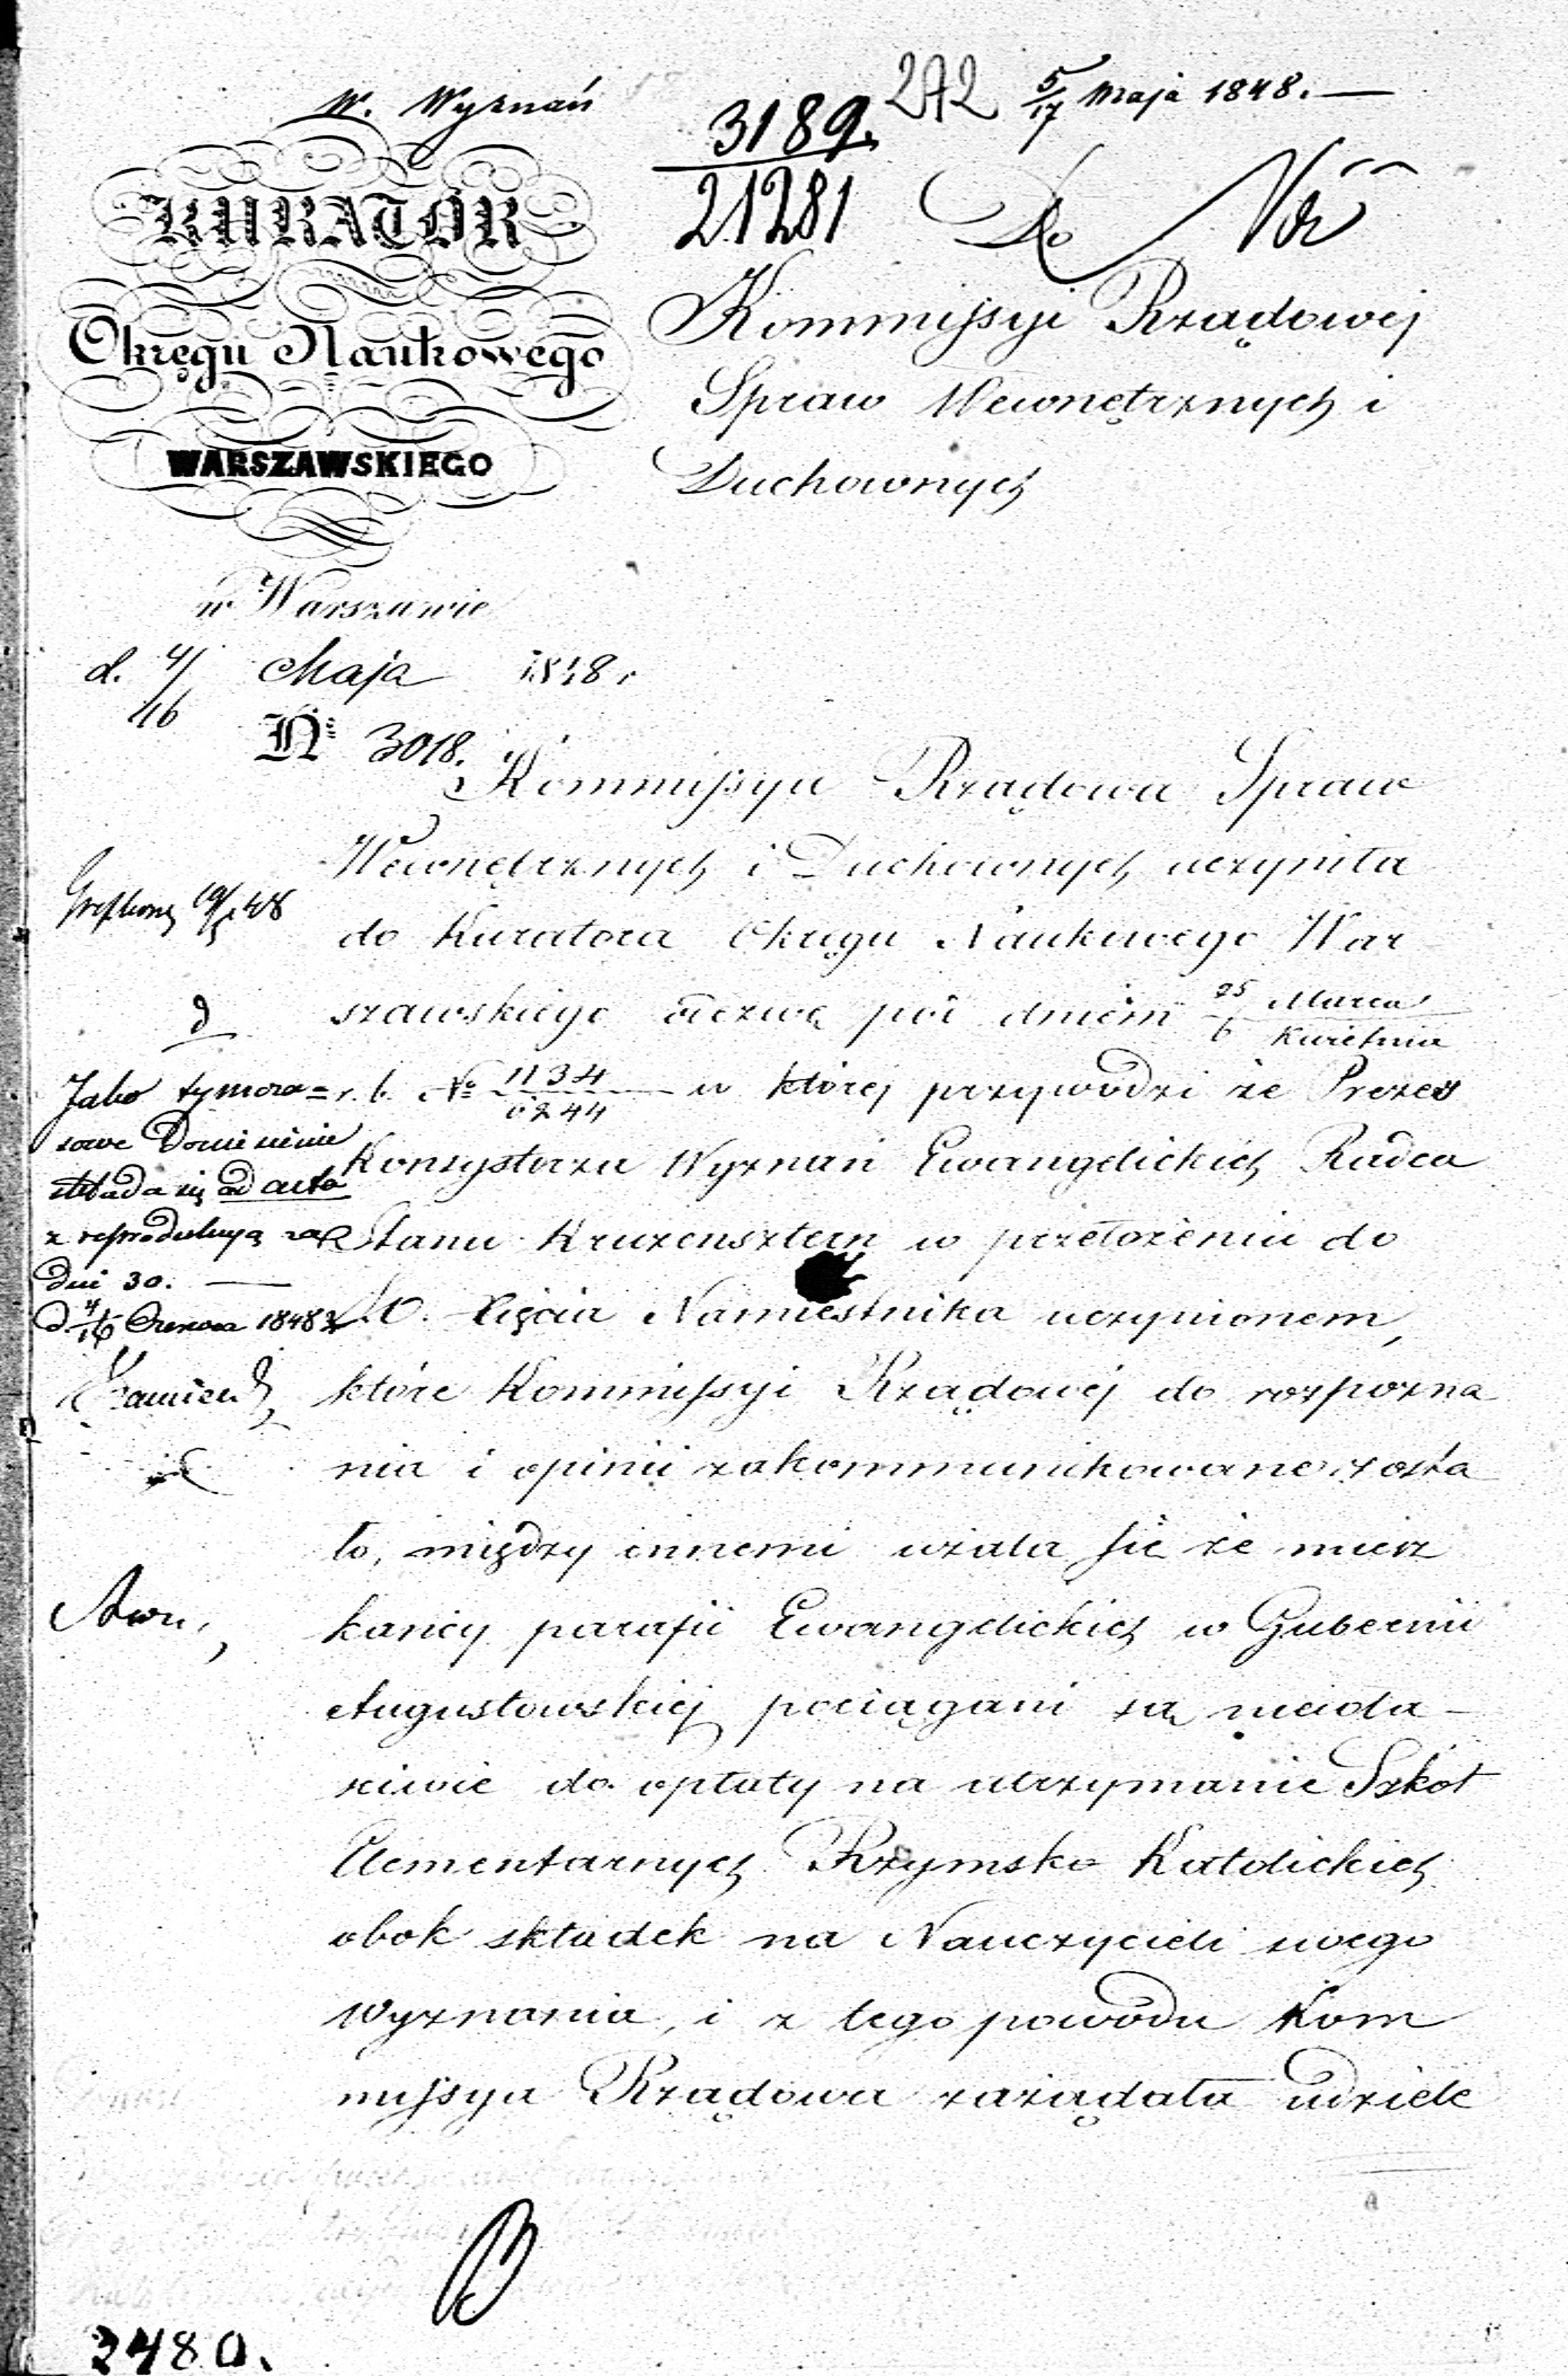 W. Wyznań
272 5/17 Maja 1848. —
3189.
21281
KURATOR
Okręgu Naukowego
WARSZAWSKIEGO
Do
Kommissyi Rządowej
Spraw Wewnętrznych i
Duchownych
w Warszawie
d. 4/16 Maja 1848 r
N° 3018.
Kommissya Rządowa Spraw
Wewnętrznych i Duchownych uczyniła
do Kuratora Okręgu Naukowego War
szawskiego odezwę pod dniem 25 Marca / 6 Kwietnia
r. b. N° 1134/6244 w której przywodzi że Prezes
Konsystorza Wyznań Ewangelickich Radca
Stanu Kruzensztern w przełożeniu do
J.O. Xięcia Namiestnika uczynionem,
które Kommissyi Rządowej do rozpozna
nia i opinii zakommunikowane zosta
ło, między innemi użala się że miesz
kańcy parafii Ewangelickich w Gubernii
Augustowskiej pociągani są niewła-
ściwie do opłaty na utrzymanie Szkół
Elementarnych Rzymsko Katolickich
obok składek na Nauczycieli swego
Wyznania, i z tego powodu Kom
missya Rządowa zażądała udziele
Jako tymcza=
sowe Doniesienie
składa się ad acta
z reprodukcyą za
dni 30. —
d. 4/16 Czerwca 1848 r
2480.